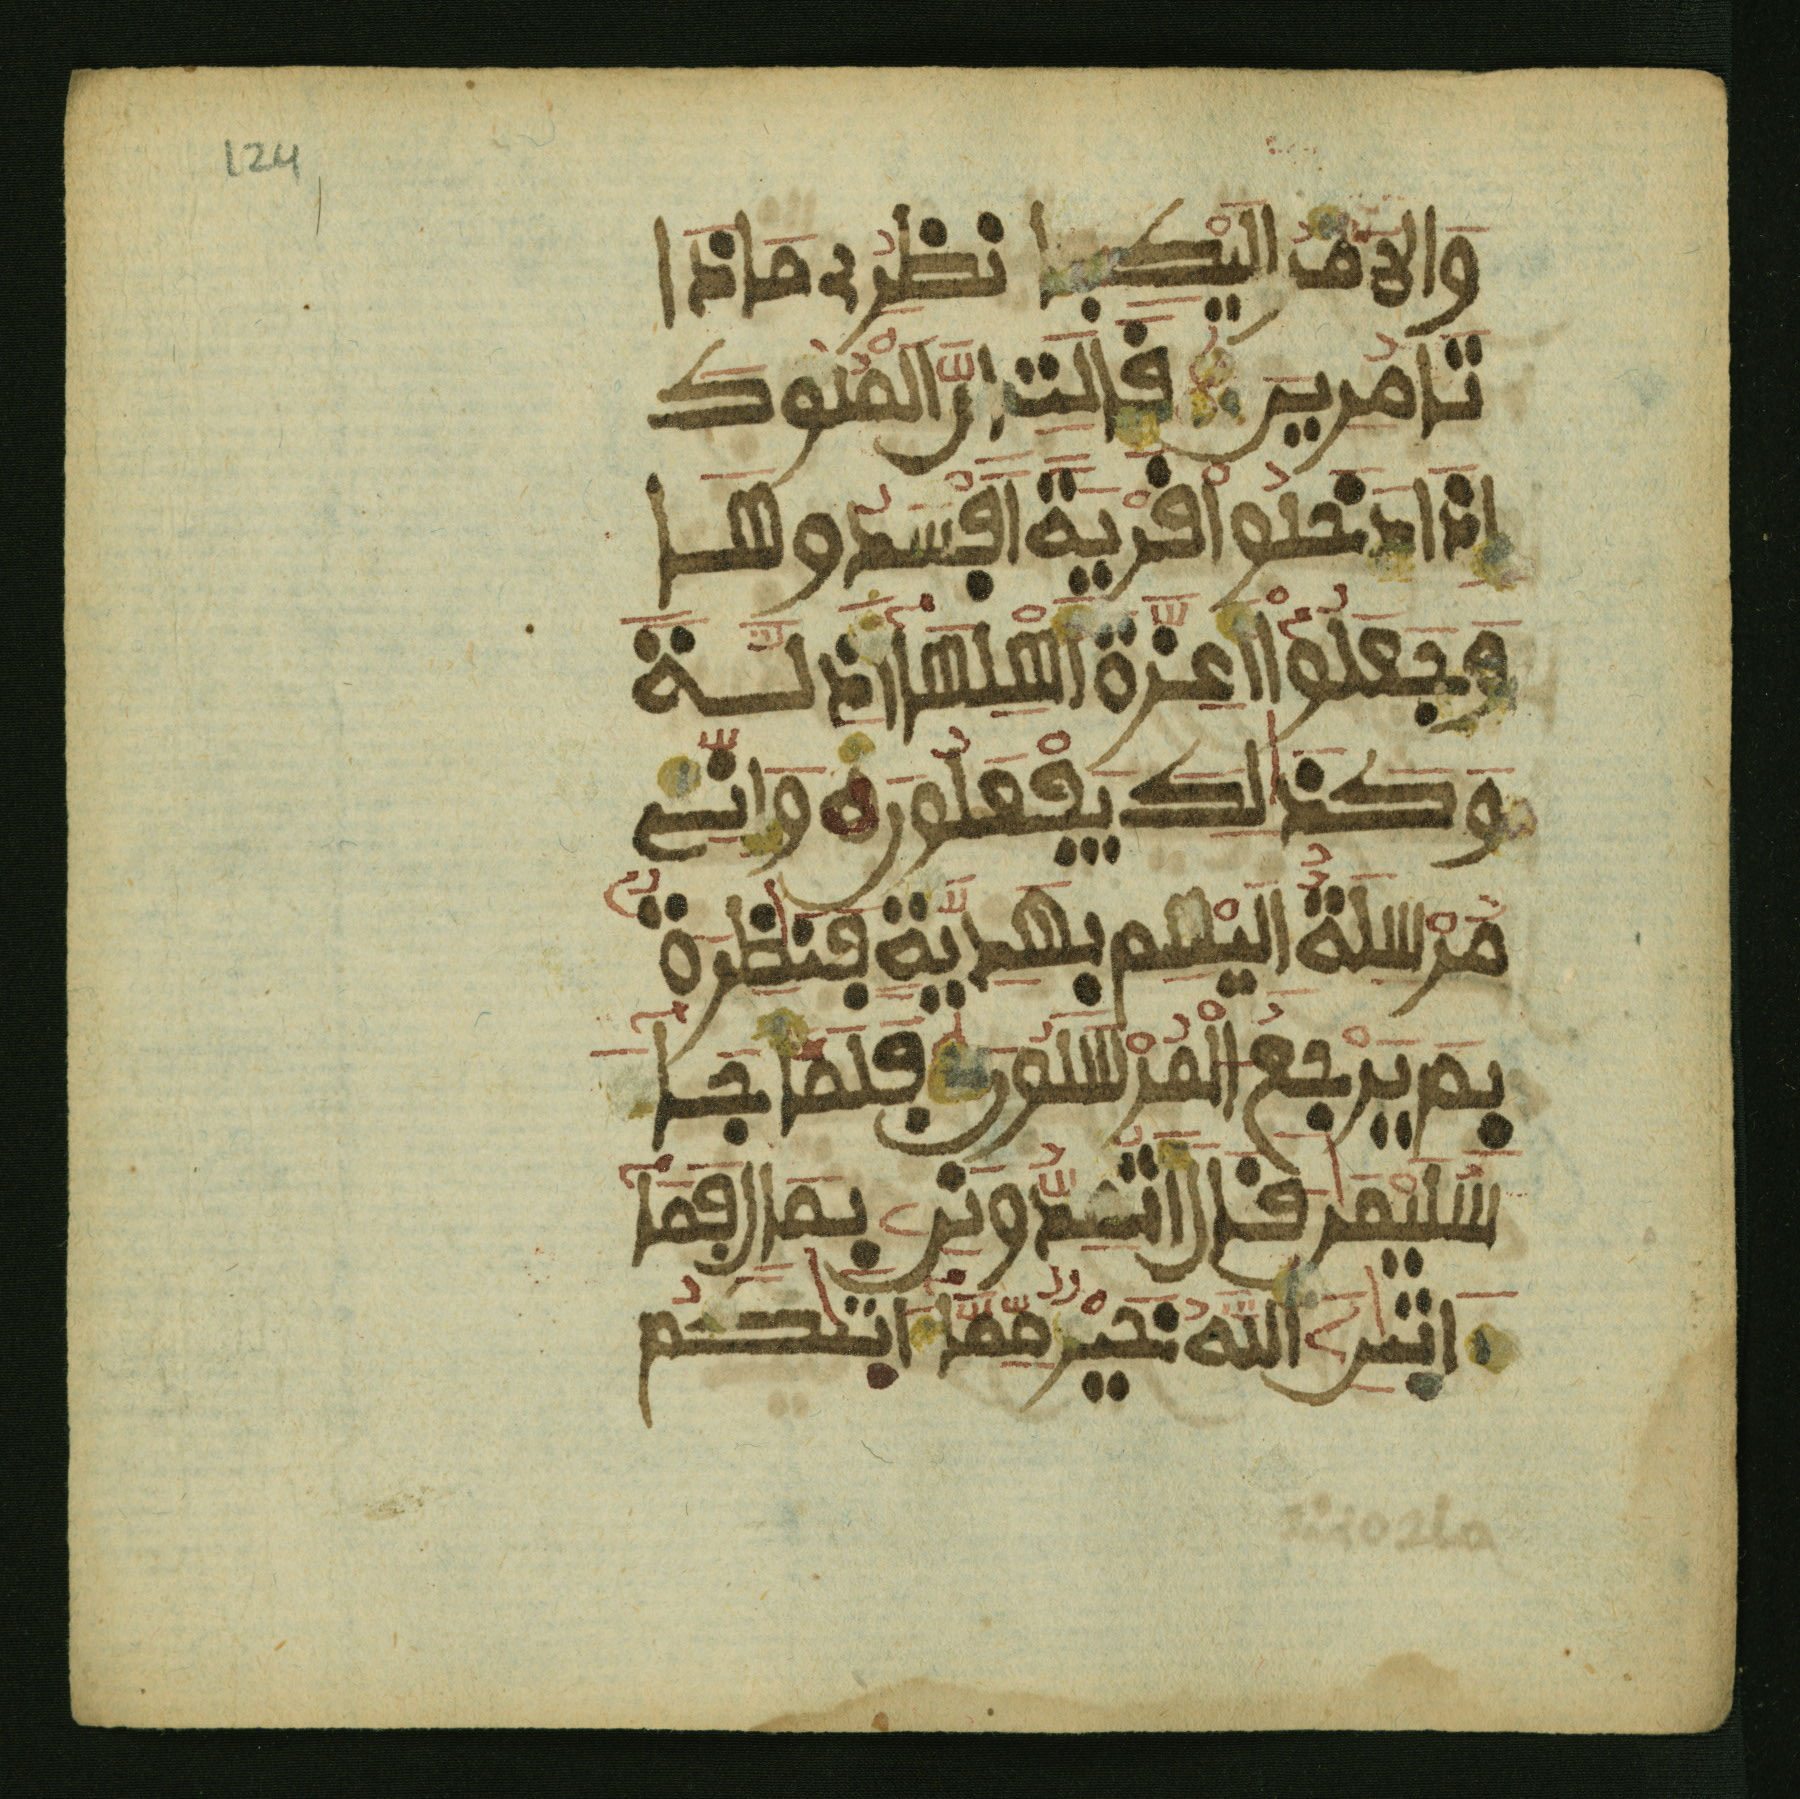 124
وَالامْرُ اِلَيْكِ فَانظُرِى مَاذَا
تَامُرِينَ قَالَتِ اِنَّ الْمُلُوكَ
اِذَا دَخَلُواْ قَرْيَةً اَفْسَدُوهَا
وَجَعَلُوٓاْ أَعِزَّةَ أَهْلِهَآ أَذِلَّةً
وَكَذَٰلِكَ يَفْعَلُونَ وَإِنِّے
مُرْسِلَةٌ اِلَيْهِم بِهَدِيَّةٍ فَنَٰظِرَةٌۢ
بِمَ يَرْجِعُ الْمُرْسَلُونَ فَلَمَّا جَآءَ
سُلَيْمَٰنَ قَالَ أَتُمِدُّونَنِ بِمَالٍ فَمَآ
ءَاتَىٰنِۦَ اللَّهُ خَيْرٌ مِّمَّآ ءَاتَىٰكُم